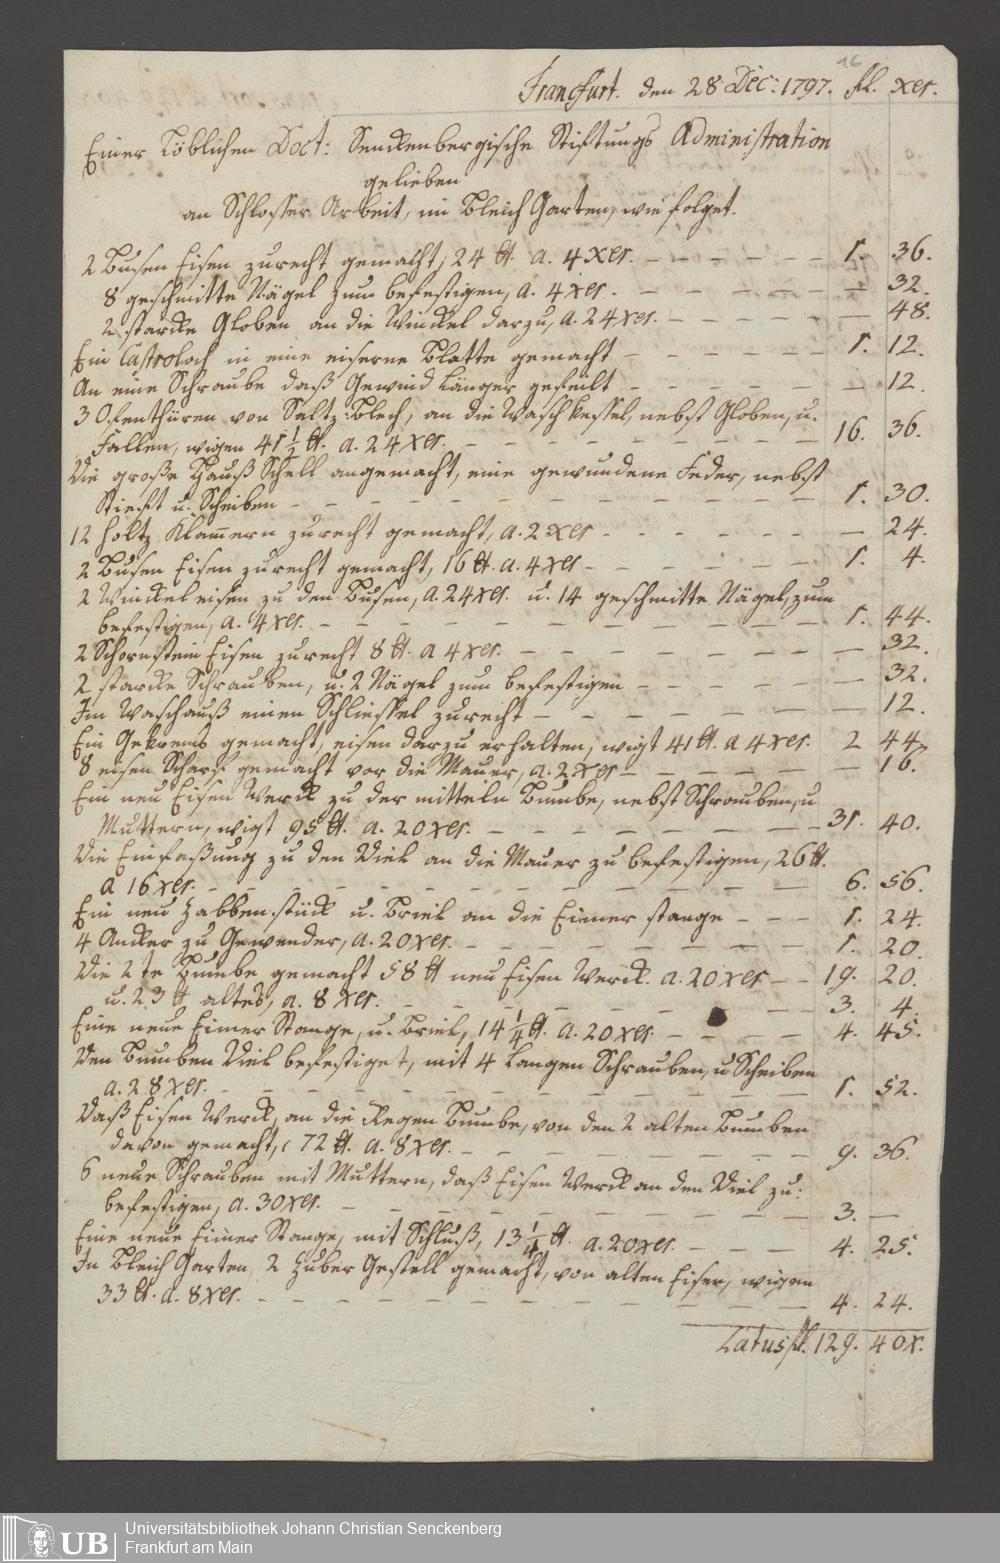 16
Francfurt. den 28 Dec: 1797. fl. xer.
Einer Löblichen Doct: Senckenbergische Stiftungs Administration
gelieben
an Schlosser Arbeit, im Bleich Garten, wie folget.
2 Busen Eisen zurecht gemacht, 24 tt. a. 4 xer. 1. 36.
8 geschmitte Nägel zum befestigen, a. 4 xer. — 32.
2 starcke Globen an die Winckel darzu, a. 24 xer. — 48.
Ein Castroloch in eine eiserne Blatte gemacht 1. 12.
An eine Schraube daß Gewind länger gefeilt — 12.
3 Ofenthüren von Saltz: Blech, an die Wasch kessel, nebst Globen, u.
Fallen, wigen 41 1/2 tt. a. 24 xer. 16. 36.
Die große Hauß Schell angemacht, eine gewundene Feder, nebst
Stieft u. Scheiben 1. 30.
12 holtz Klam̄ern zurecht gemacht, a. 2 xer — 24.
2 Busen Eisen zurecht gemacht, 16 tt. a. 4 xer 1. 4.
2 Winckeleisen zu den Busen, a. 24 xer. u. 14 geschmitte Nägel, zum
befestigen, a. 4 xer. 1. 44.
2 Schornstein Eisen zurecht 8 tt. a 4 xer. — 32.
2 starcke Schrauben, u. 2 Nägel zum befestigen — 32.
Im Waschauß einen Schliessel zurecht — 12.
Ein gemacht, eisen darzu erhalten, wigt 41 tt. a 4 xer. 2 44.
8 eisen Scharf gemacht vor die Mauer, a. 2 xer — 16.
Ein neu Eisen Werck zu der mitteln Bumbe, nebst Schrauben, u
Muttern, wigt 95 tt. a. 20 xer. 31. 40.
Die Einfaßung zu den Diel an die Mauer zu befestigen, 26 tt.
a 16 xer. 6. 56.
Ein neu Zabbenstück u. Briel an die Eimer stange 1. 24.
4 Ancker zu Gewender, a. 20 xer. 1. 20.
Die 2te Bumbe gemacht 58 tt neu Eisen Werck. a. 20 xer 19. 20.
u. 23 tt altes, a. 8 xer. 3. 4.
Eine neue Eimer Stange, u. Briel, 14 1/4 tt. a. 20 xer. 4. 45.
Den Bumben Diel befestiget, mit 4 langen Schrauben, u Scheiben
a. 28 xer. 1. 52.
Daß Eisen Werck, an die Regen Bumbe, von den 2 alten Bumben
davon gemacht, 72 tt. a. 8 xer. 9. 36.
6 neue Schrauben mit Muttern, daß Eisen Werck an den Diel zu:
befestigen, a. 30 xer. 3. —
Eine neue Eimer Stange, mit Schluß, 13 1/4 tt. a. 20 xer. 4. 25.
In Bleich Garten 2 Zuber Gestell gemacht, von alten Eisen, wigen
33 tt. a. 8 xer. 4. 24.
Latus fl. 129. 40 x.
UB
Universitätsbibliothek Johann Christian Senckenberg
Frankfurt am Main